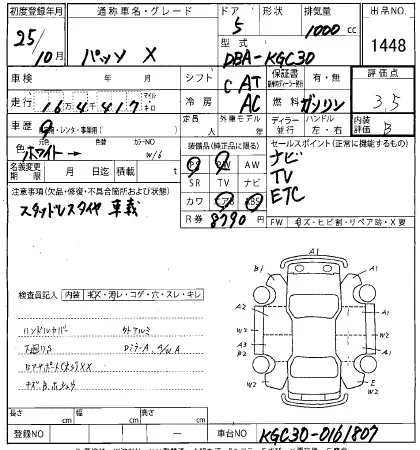 初度登録年月 通称車名・グレード ドア 形状 排気量 出品NO.
25/10月 パッソ X 5 1000cc 1448
型式 DBA-KGC30
車検 年 月 シフト CAT 保証書 有・無 評価点
走行 16万4千417 マイル キロ 冷房 AC 燃料 ガソリン 3.5
車歴 定員 人 外車モデル 年 ディーラー 並行 ハンドル 左・右 内装評価 B
色 ホワイト 元色 色替 カラーNO W16 装備品(純正品に限る) セールスポイント(正常に機能するもの)
PS PW AW ナビ
名義変更期限 月 日迄 積載 t SR TV ナビ TV
注意事項(欠品・修復・不具合箇所および状態) カワ エアB ABS ETC
スタッドレスタイヤ 車載 R券 8790円 FW キズ・ヒビ割・リペア跡・X要
検査員記入 内装 キレ・コゲ・穴・スレ・キレ
ハンドルカバー 社外アルミ
下廻りS
B1 A1
A2 A1
W2 W2
A3 W2
B2
W2 E
A1
長さ cm 幅 cm 高さ cm
登録NO 車台NO KGC30-0161807